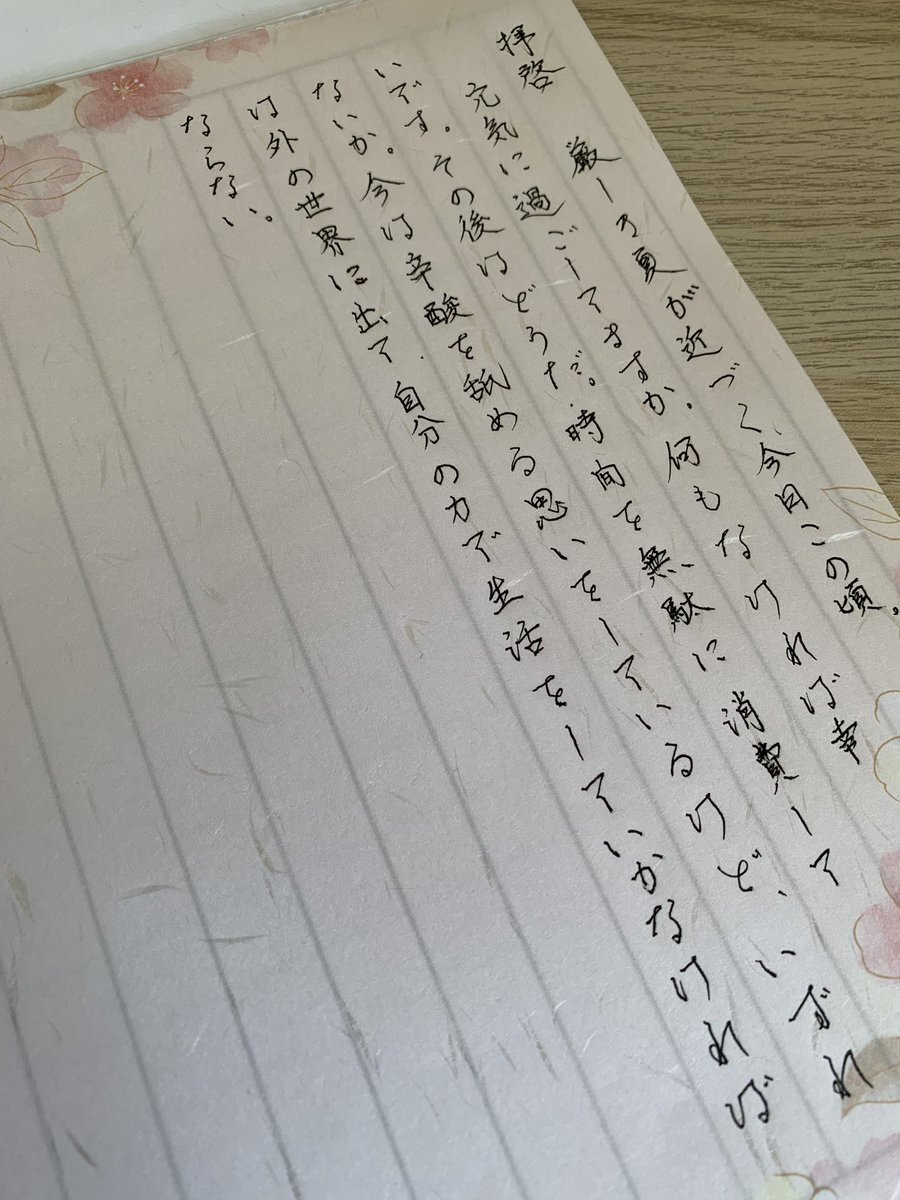 拝啓　厳しき夏が近づく今日この頃。
元気に過ごしてますか。何もなければ幸
いです。その後はどうだ。時間を無駄に消費して
ないか。今は辛酸を舐める思いをしているけど、いずれ
は外の世界に出て、自分の力で生活をしていかなければ
ならない。